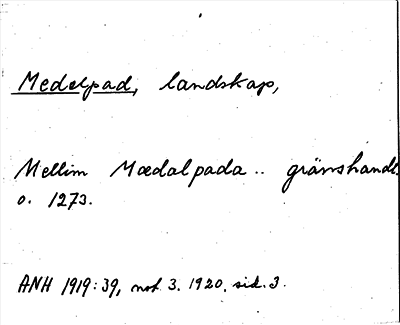 Medelpad, landskap,
Mellim Mædalpada .. gränshandl.
o. 1273.
ANH 1919:39, not. 3. 1920, sid. 3.